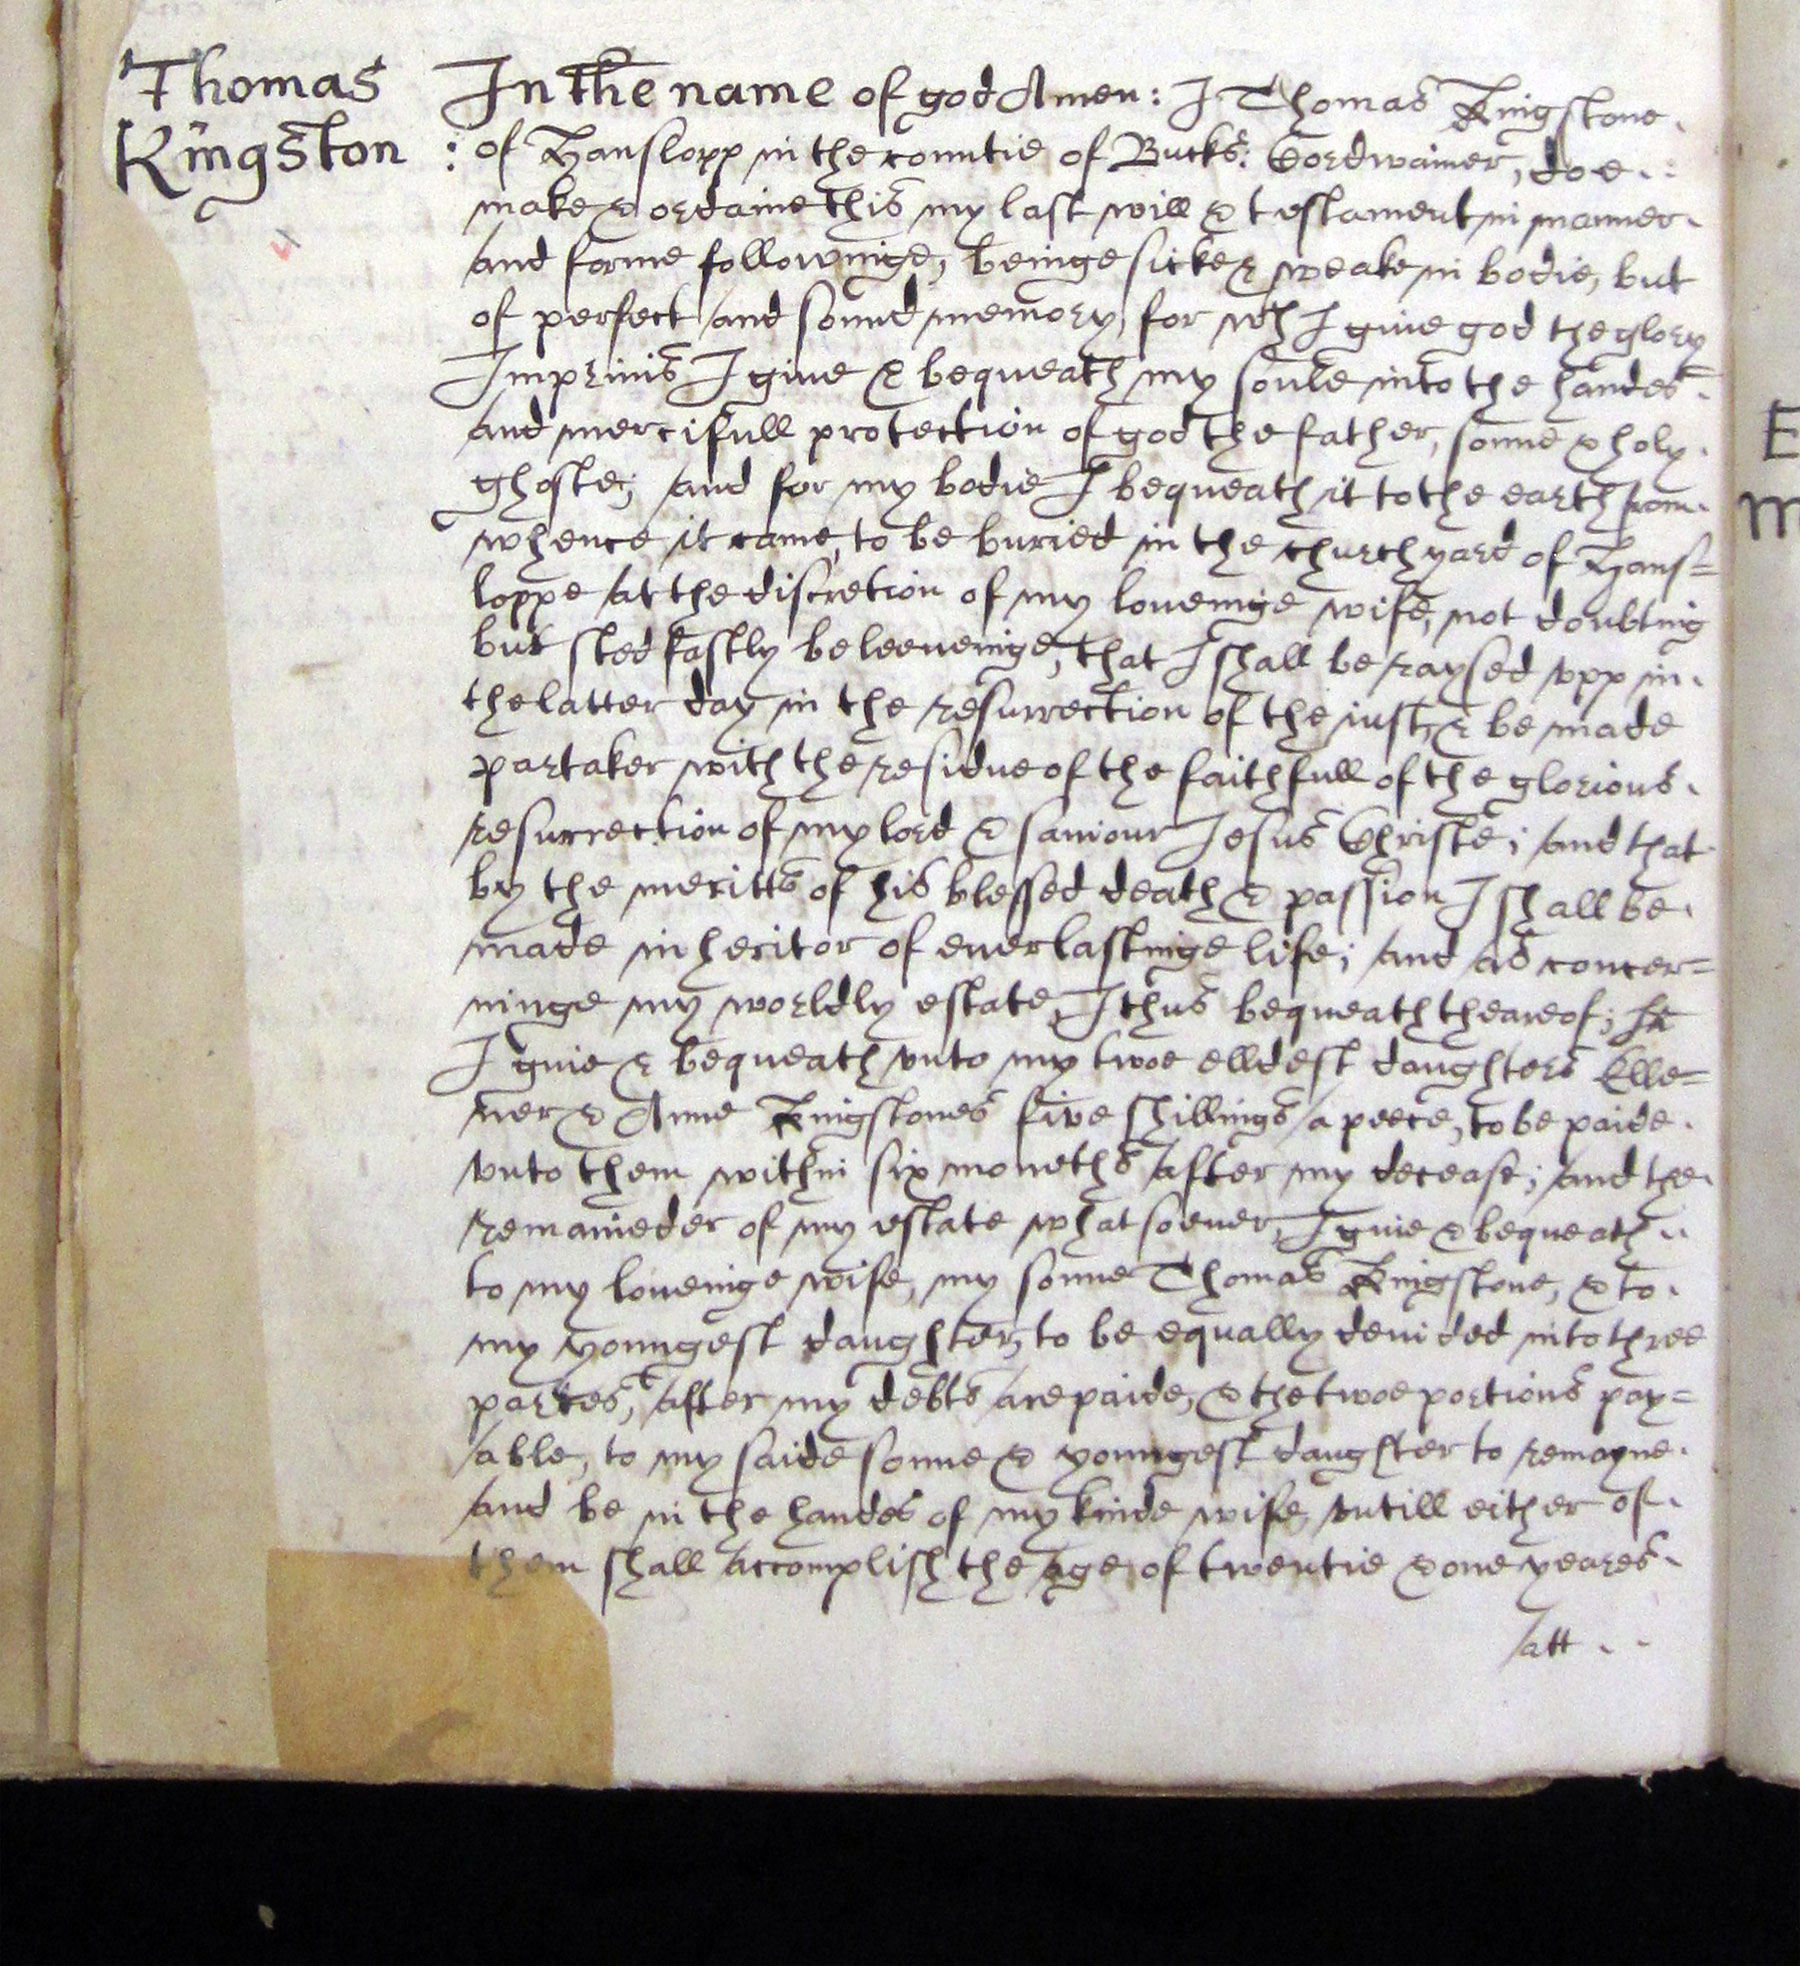 Thomas
Kingston
In the name of god Amen: I Thomas Kingstone
of Hanslopp in the countie of Bucks: Cordwainer, doe
make & ordaine this my last will & testament in manner
and forme followinge, beinge sicke & weake in bodie, but
of perfect and sound memory, for wch I giue god the glory
Imprimis I giue & bequeath my soule into the handes
and mercifull protection of god the father, sonne & holy
ghoste; and for my bodie I bequeath it to the earth from
whence it came, to be buried in the church yard of Hans=
loppe at the discretion of my loueinge wife, not doubting
but stedfastly beleeueinge, that I shall be raysed vpp in
the latter day in the resurrection of the iust, & be made
partaker with the residue of the faithfull of the glorious
resurrection of my lord & sauiour Jesus Christe; and that
by the meritts of his blessed death & passion I shall be
made inheritor of euerlastinge life; and as concer=
ninge my worldly estate, I thus bequeath theareof; It
I giue & bequeath vnto my twoe elldest daughters Elle=
ner & Anne Kingstones five shillings a peece, to be paide
vnto them within six moneths after my decease; and the
remaineder of my estate whatsoeuer, I giue & bequeath
to my loueinge wife, my sonne Thomas Kingstone, & to
my youngest daughter, to be equally deuided into three
partes, after my debts are paide, & the twoe portions pay=
able, to my saide sonne & youngest daughter to remayne
and be in the handes of my kinde wife, vntill either of
them shall accomplish the age of twentie & one yeares
att
E
m